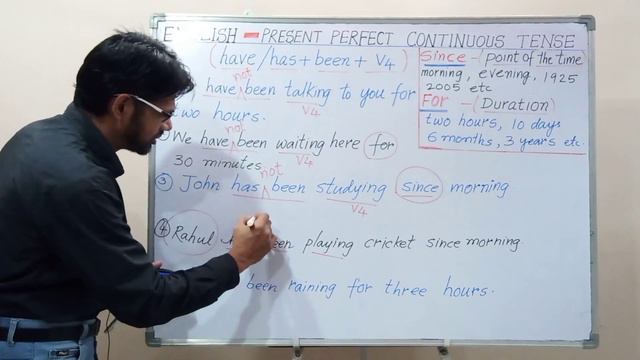 PRESENT PERFECT CONTINUOUS TENSE
(have/has + been + V4)
not
have been talking to you for
V4
two hours.
not
We have been waiting here for
V4
30 minutes
not
③ John has been studying since morning
V4
④ Rahul playing cricket since morning
been raining for three hours.
Since - (Point of the time)
morning, evening, 1925
2005 etc
FOR - (Duration)
two hours, 10 days
6 months, 3 years etc.